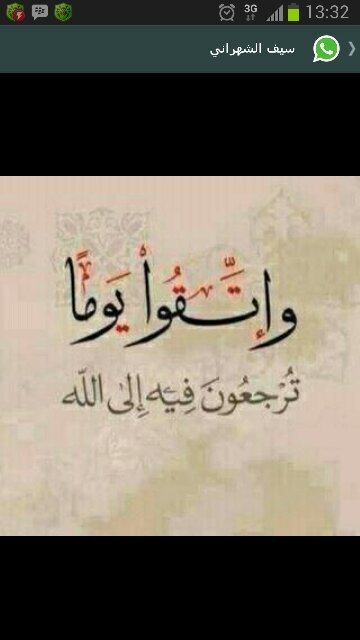 3G 13:32
سيف الشهراني
واتَّقُواْ يَوماً
تُرْجعُونَ فِيهِ إِلى اللّه